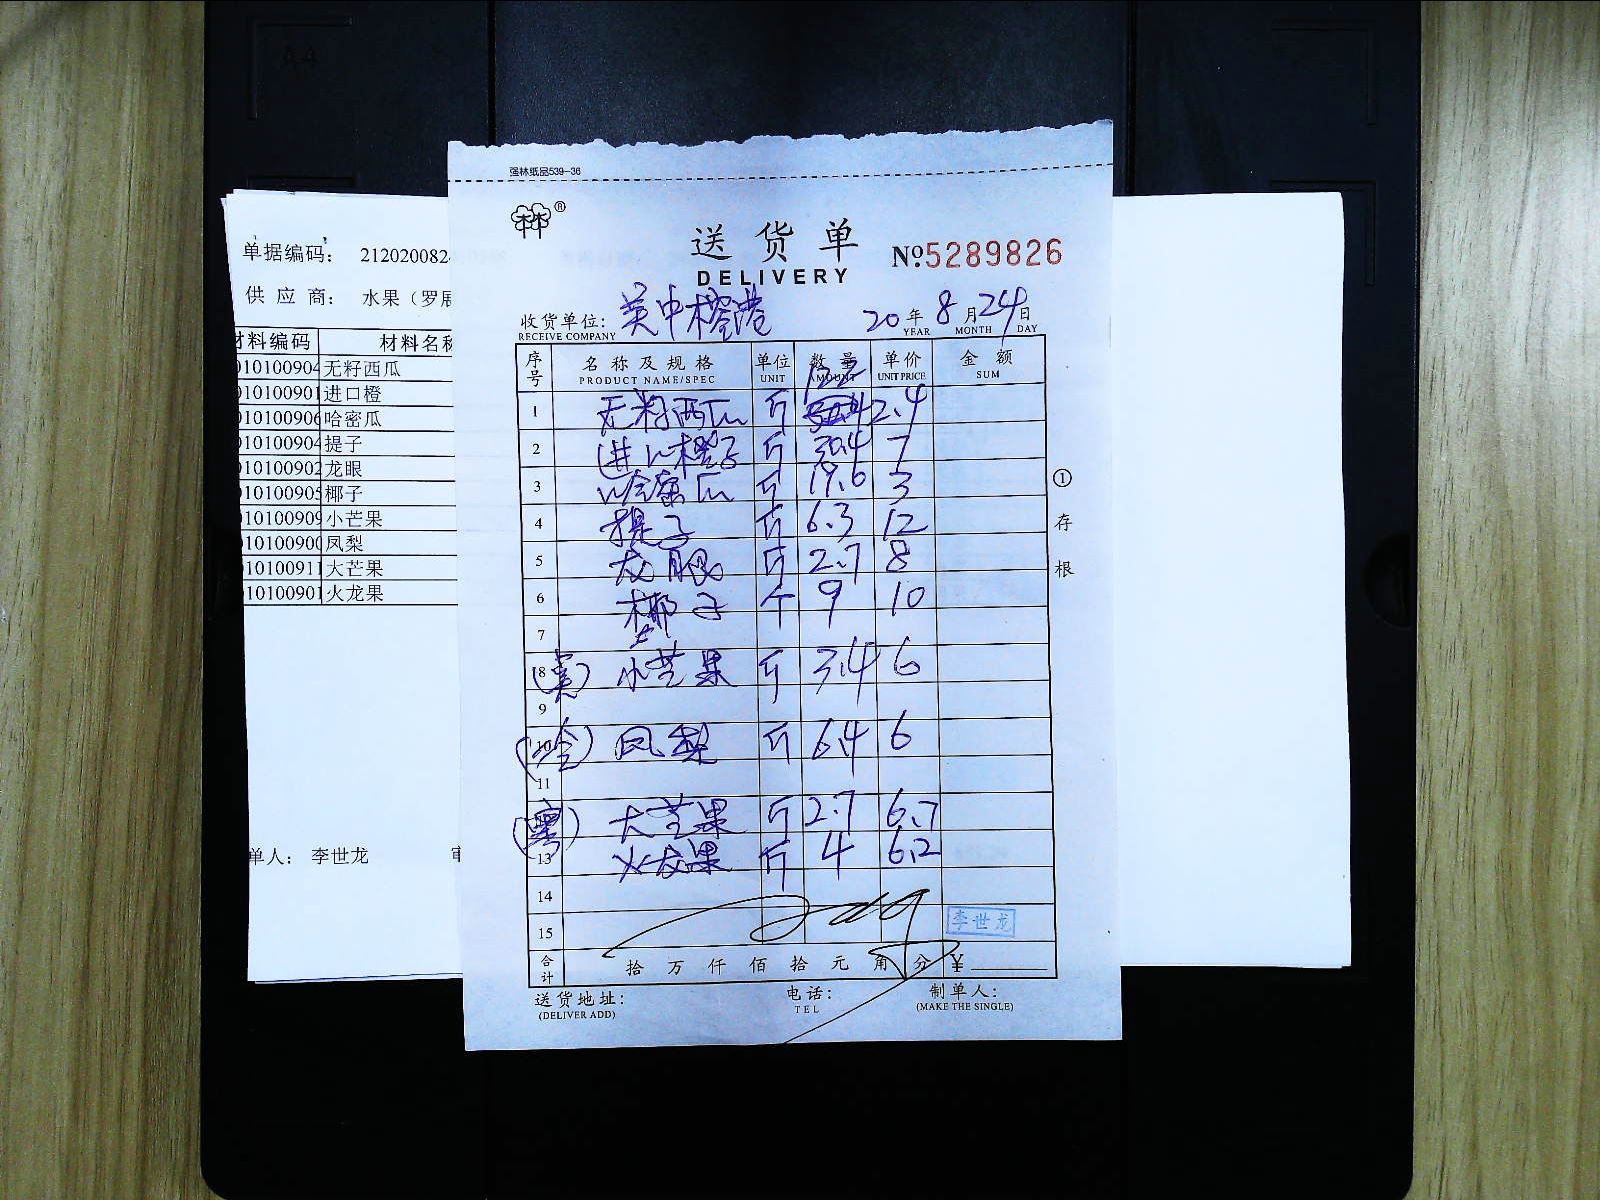 强林纸品539-36
林林®
送货单
DELIVERY
№5289826
收货单位：吴中榕港
RECEIVE COMPANY
20年8月24日
YEAR MONTH DAY
序号 名称及规格 单位 数量 单价 金额
PRODUCT NAME/SPEC UNIT AMOUNT UNIT PRICE SUM
1 无籽西瓜 斤 2.4
2 进口橙子 斤 30.4 7
3 哈密瓜 斤 19.6 3
4 提子 斤 6.3 12
5 龙眼 斤 2.7 8
6 椰子 个 9 10
7
8 小芒果 斤 3.4 6
9
10 凤梨 斤 6.4 6
11
大芒果 斤 2.7 6.7
13 火龙果 斤 4 6.2
14
15 李世龙
合计 拾万仟佰拾元角分 ¥
送货地址： 电话： 制单人：
(DELIVER ADD) TEL (MAKE THE SINGLE)
① 存根
单据编码： 212020082
供应商： 水果（罗展
材料编码 材料名称
010100904 无籽西瓜
010100901 进口橙
010100906 哈密瓜
010100904 提子
010100902 龙眼
010100905 椰子
010100909 小芒果
010100900 凤梨
010100911 大芒果
010100901 火龙果
单人： 李世龙
A4